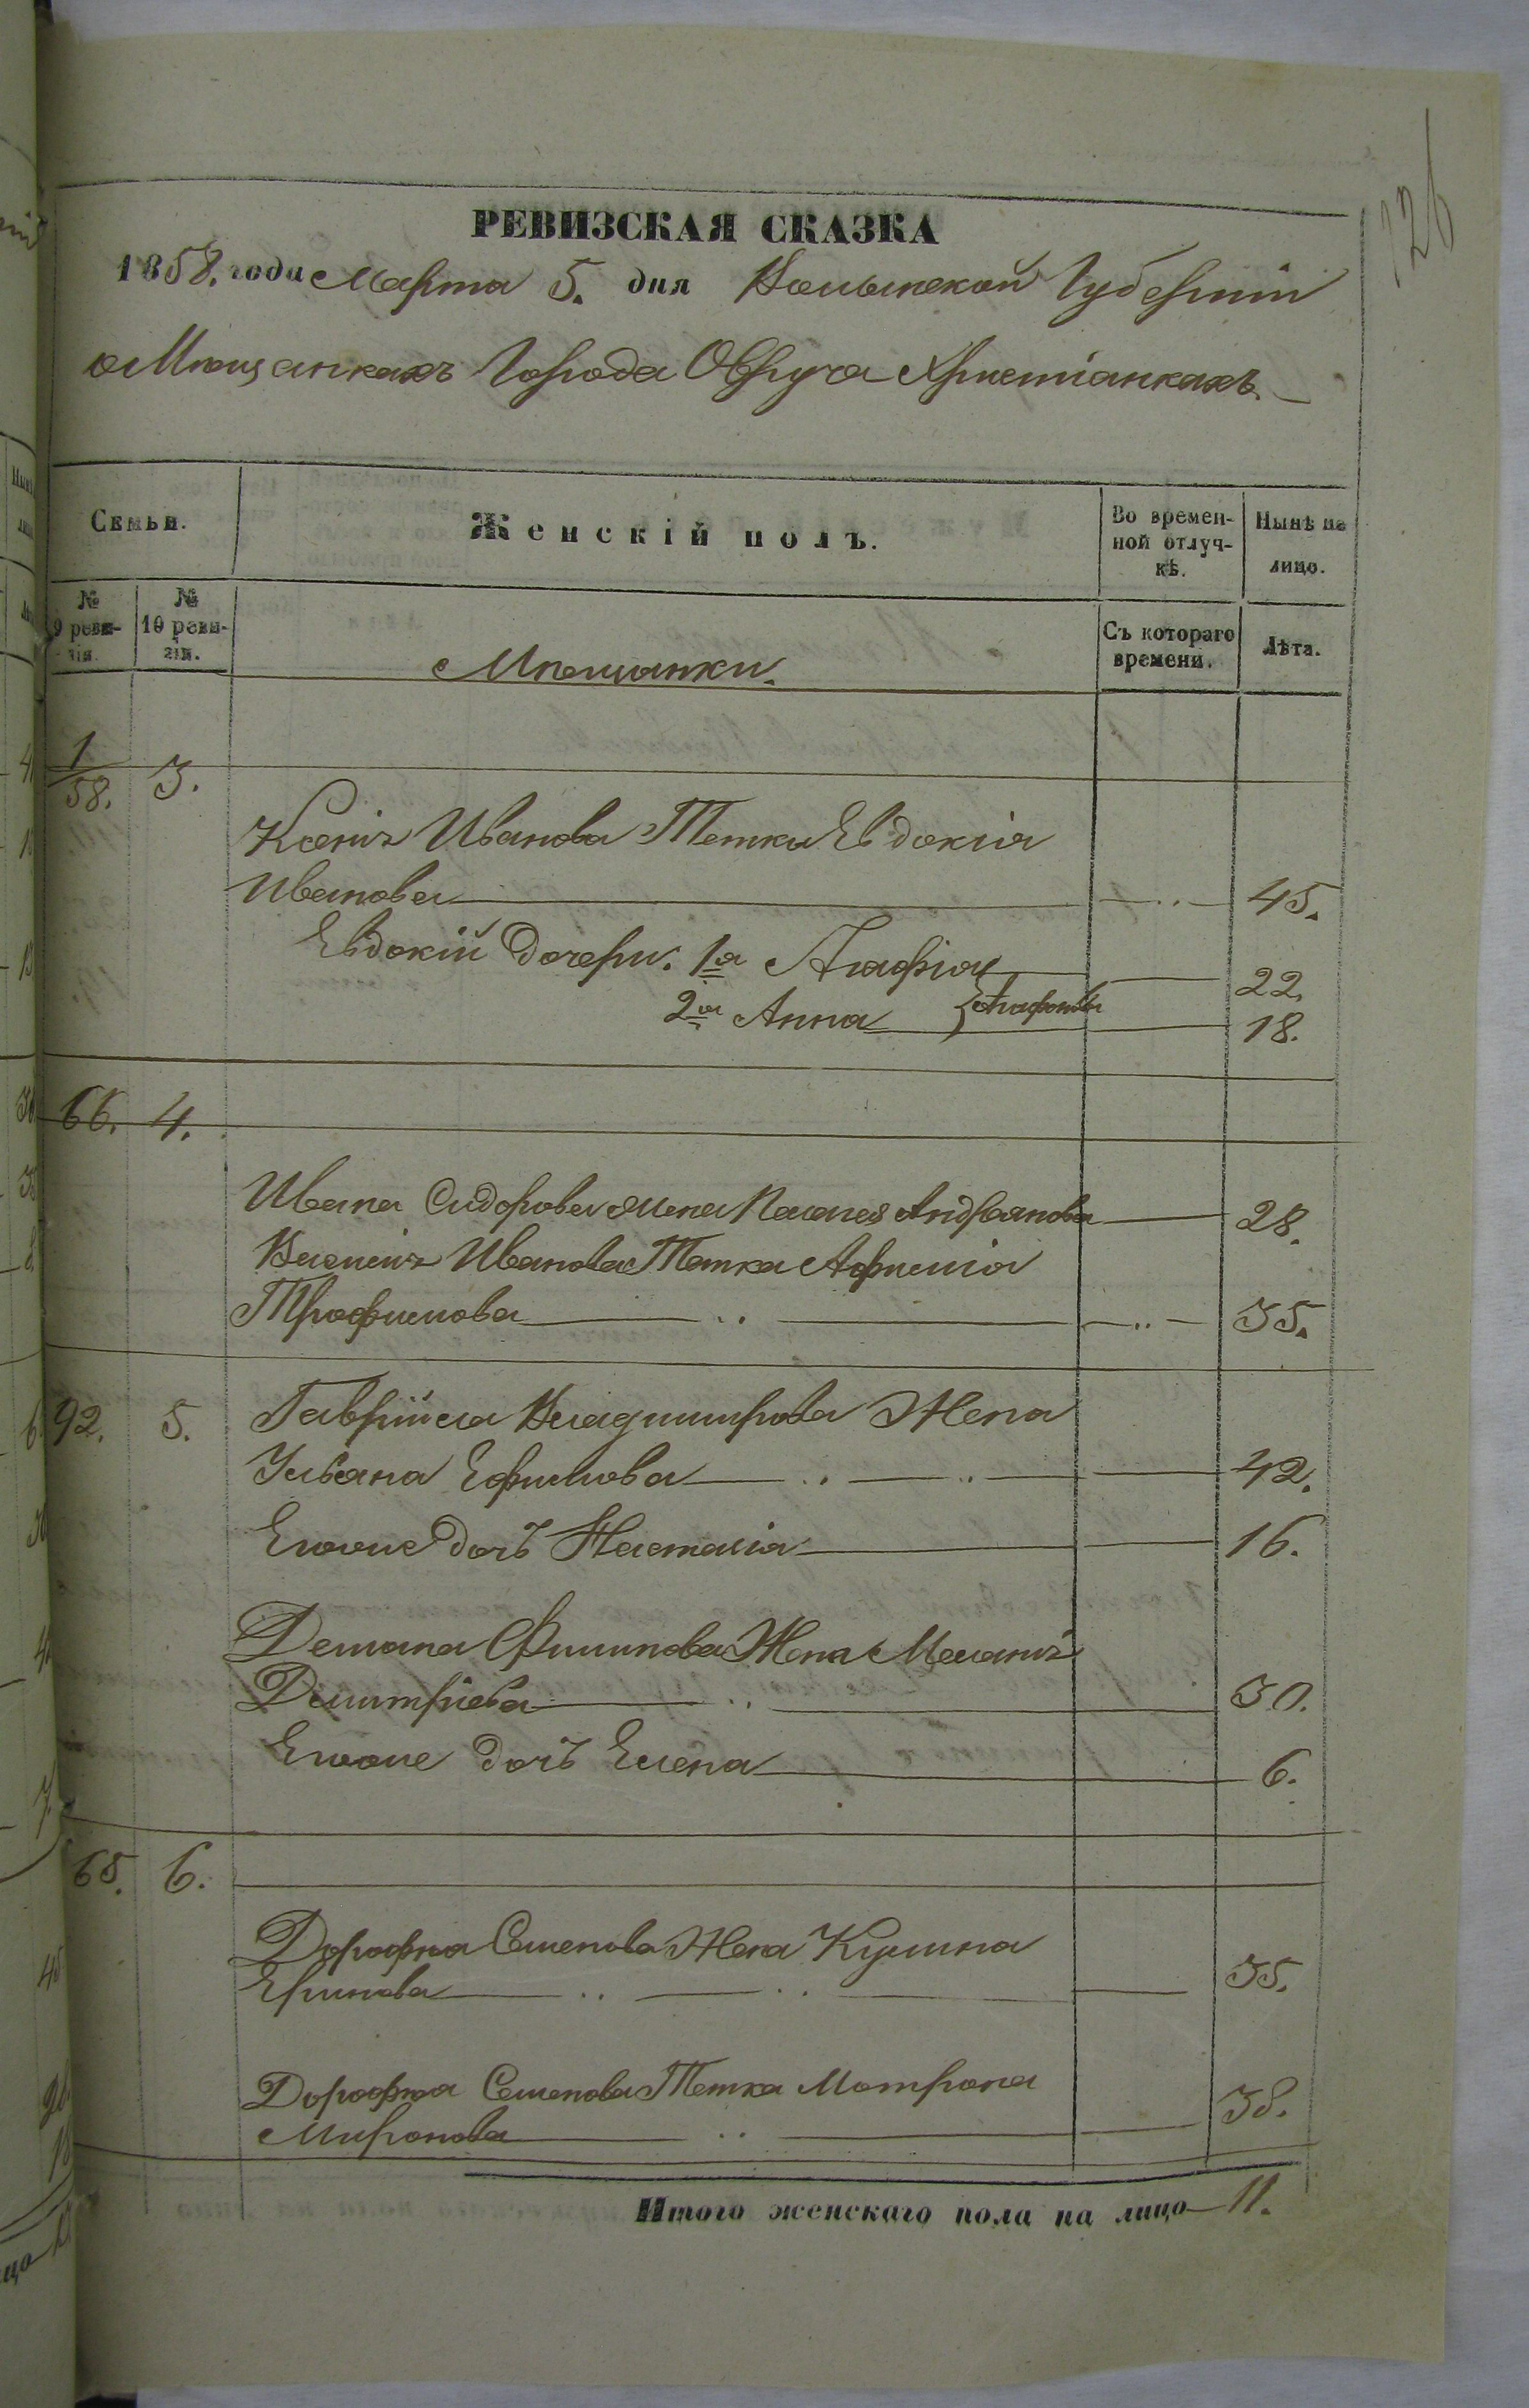 126
РЕВИЗСКАЯ СКАЗКА
1858. года Марта 5. дня Волынской Губерніи
о Мѣщанкахъ Города Овруча Христіанкахъ.
Семьи.
Женскій полъ.
Во времен-
ной отлуч-
кѣ.
Нынѣ на
лицо.
№
9 реви-
зіи.
№
10 реви-
зіи.
Мѣщанки.
Съ котораго
времени.
Лѣта.
1
58. 3.
Иванова Тетка Евдокія
Иванова 45.
Евдокіи дочери. 1я Агафія 22.
2я Анна Агафоновы 18.
66. 4.
Ивана Сидорова жена Андреянова 28.
Иванова Тетка
Трофимова 35.
92. 5. Гаврійла Владимирова Жена
Ульяна Ефимова 42.
Ихъ дочь Наталія 16.
Демяна Филипова Жена
Димитріева 30.
дочь Елена 6.
65. 6.
Дорофея Семенова Жена
35.
Дорофея Семенова Тетка Матрона
Миронова 38.
Итого женскаго пола на лицо 11.